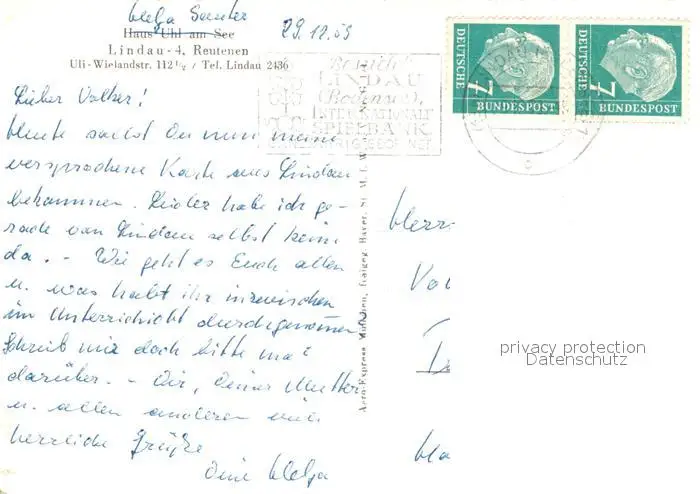 Helga Sauter
29.12.59
Haus Uhl am See
Lindau-4, Reutenen
Uli-Wielandstr. 112 ½ / Tel. Lindau 2436
Besucht
LINDAU
(Bodensee)
INTERNATIONALE
SPIELBANK
GANZJÄHRIG GEÖFFNET
DEUTSCHE
BUNDESPOST
7
DEUTSCHE
BUNDESPOST
7
Lieber Volker!
Heute sollst Du nun meine
versprochene Karte aus Lindau
bekommen. Leider habe ich ge-
rade von Lindau selbst keine
da. - Wie geht es Euch allen
u. was habt ihr inzwischen
im Unterricht durchgenommen?
Schreib mir doch bitte mal
darüber. - Dir, Deiner Mutter
u. allen anderen viele
herzliche Grüße
Deine Helga
Aero-Express München, Freigeg. Bayer. St. M. f. W.
Herrn
Vol
privacy protection
Datenschutz